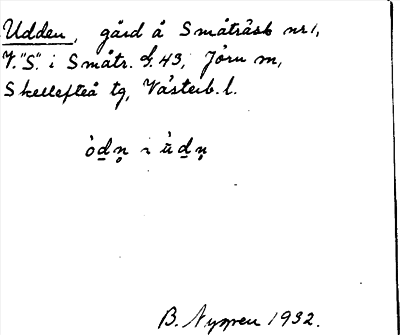 Udden, gård å Småträsk nr 1,
V. "S." i Småtr. S. 43, Jörn sn,
Skellefteå tg, Västerb. l.
B. Nygren 1932.